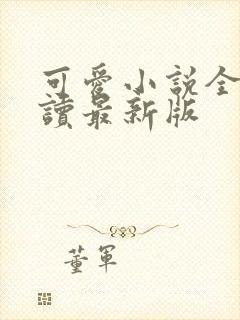 可愛小說全
讀最新版
董軍